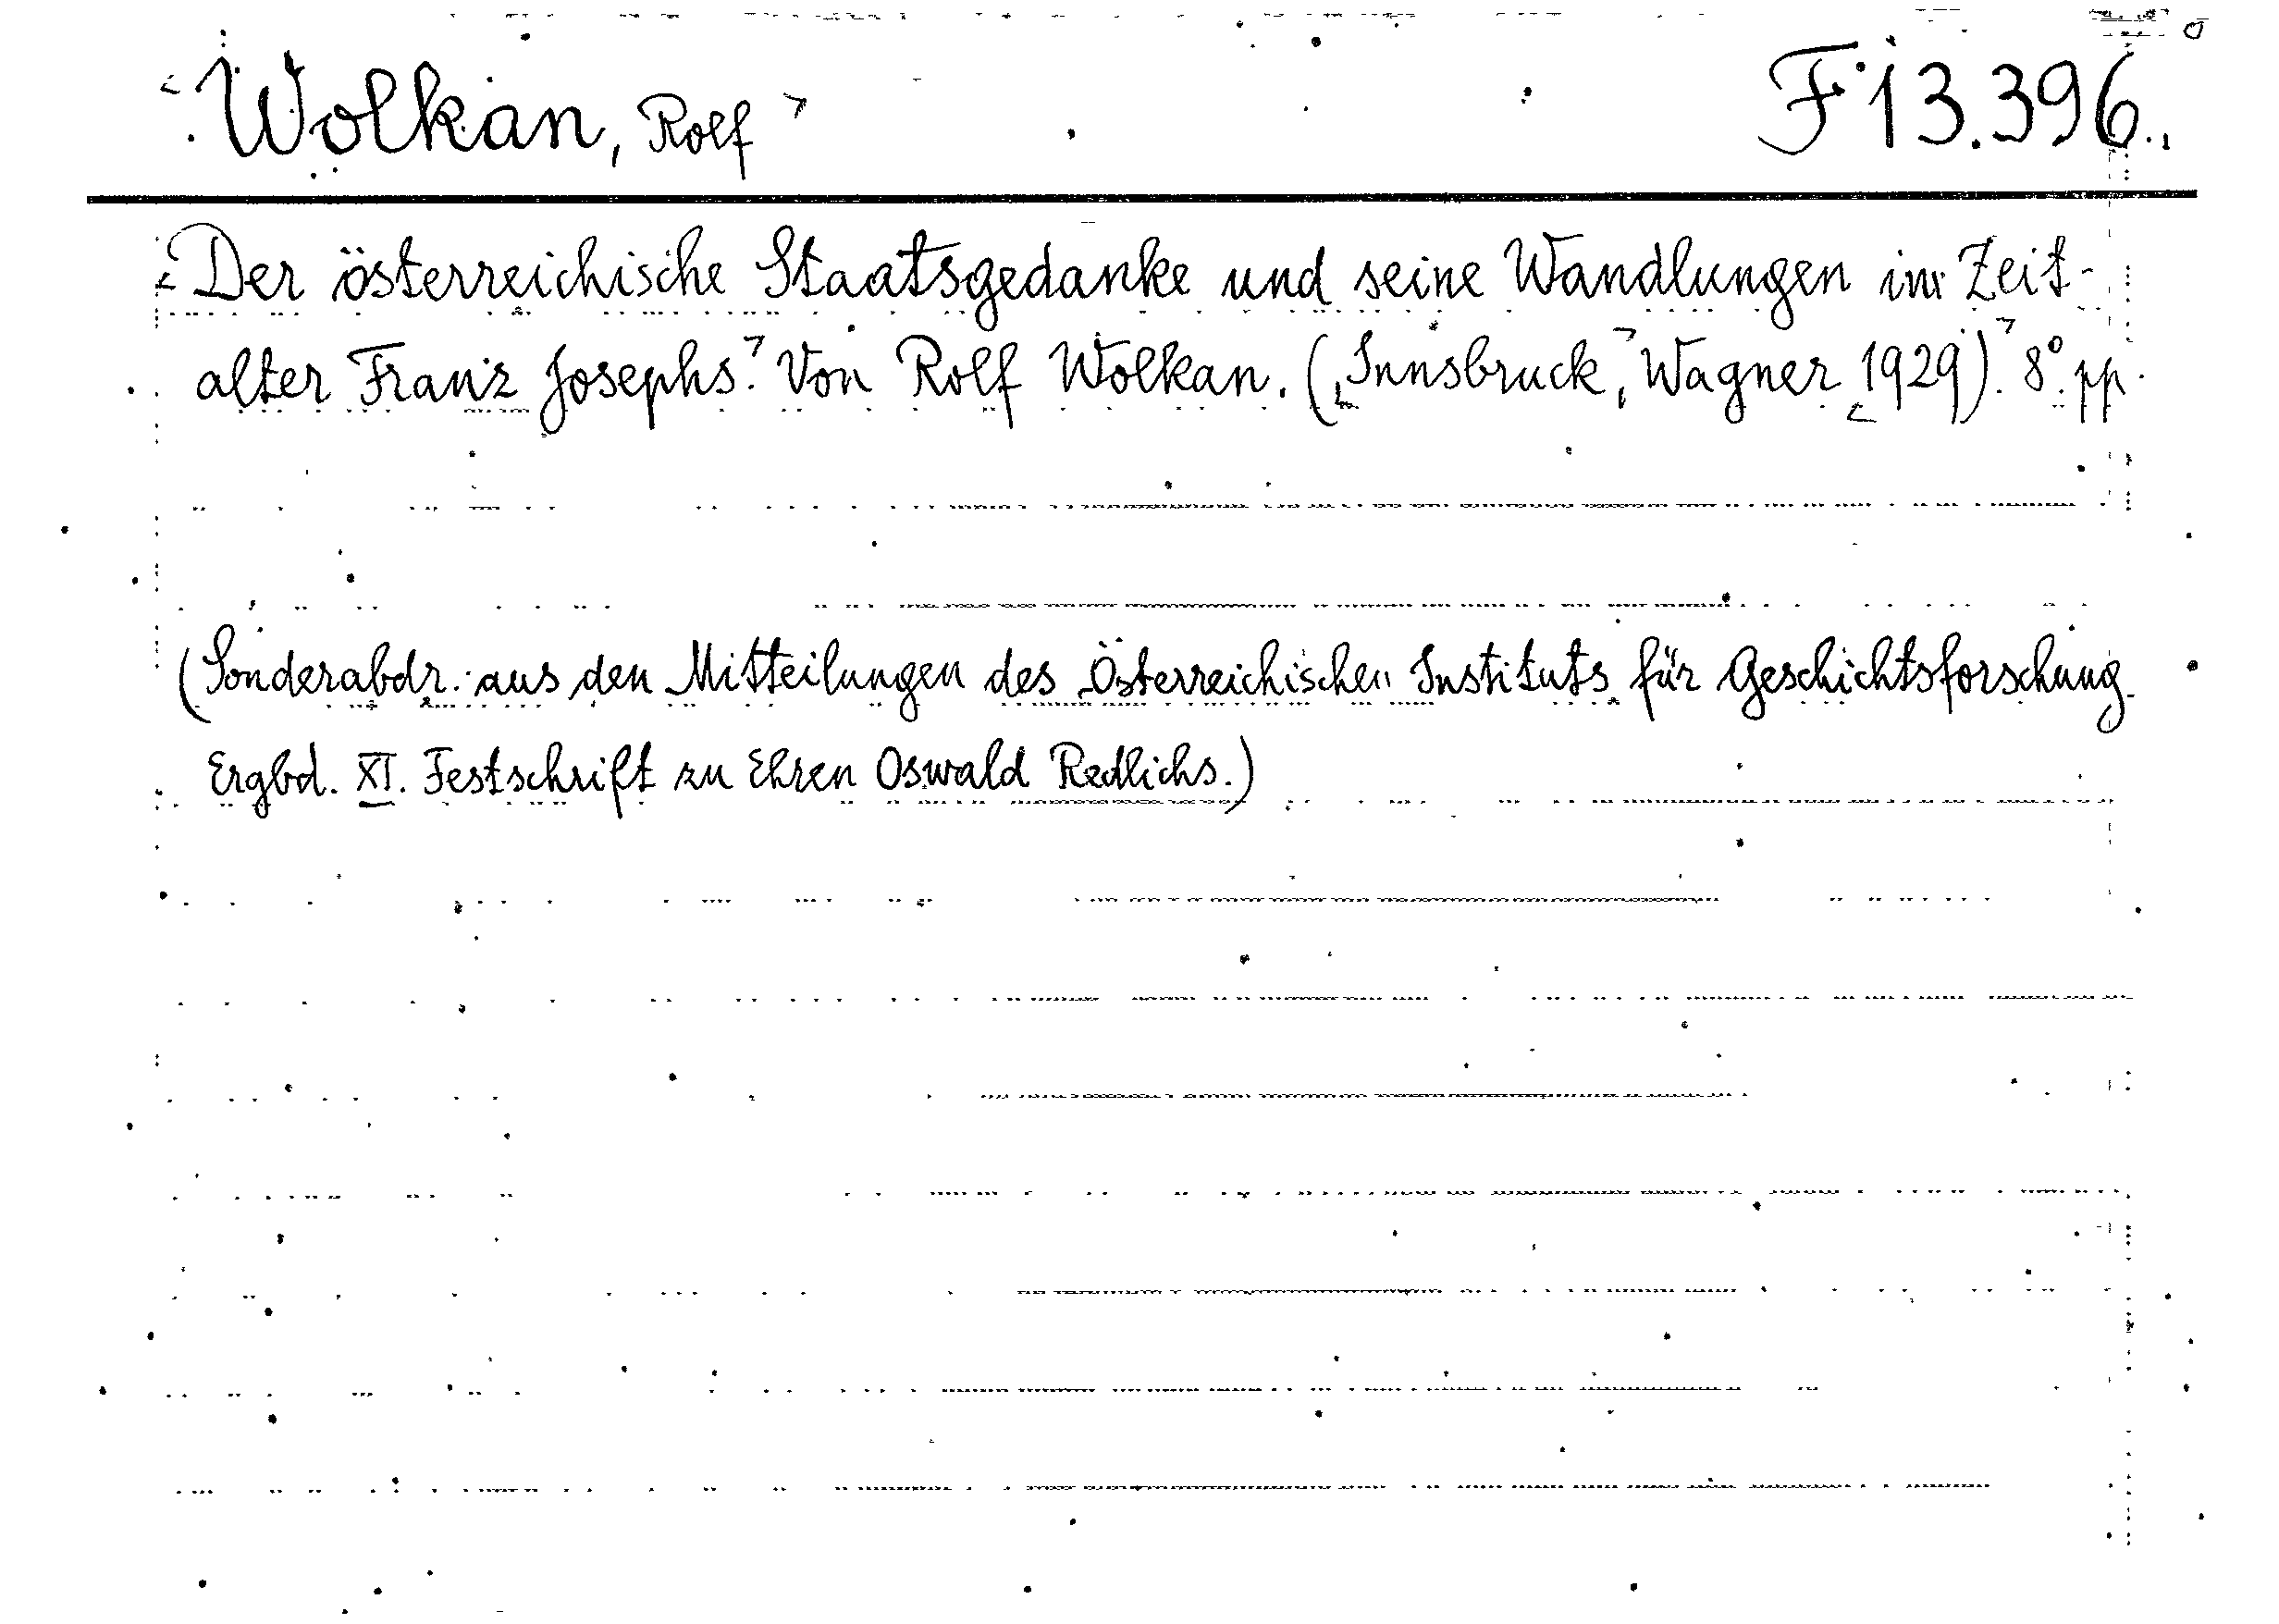 Wolkan, Rolf
F 13.396.
Der österreichische Staatsgedanke und seine Wandlungen im Zeit-
alter Franz Josephs. Von Rolf Wolkan. (Innsbruck, Wagner 1929). 8°. pp.
(Sonderabdr. aus den Mitteilungen des Österreichischen Instituts für Geschichtsforschung
Ergbd. XI. Festschrift zu Ehren Oswald Redlichs.)